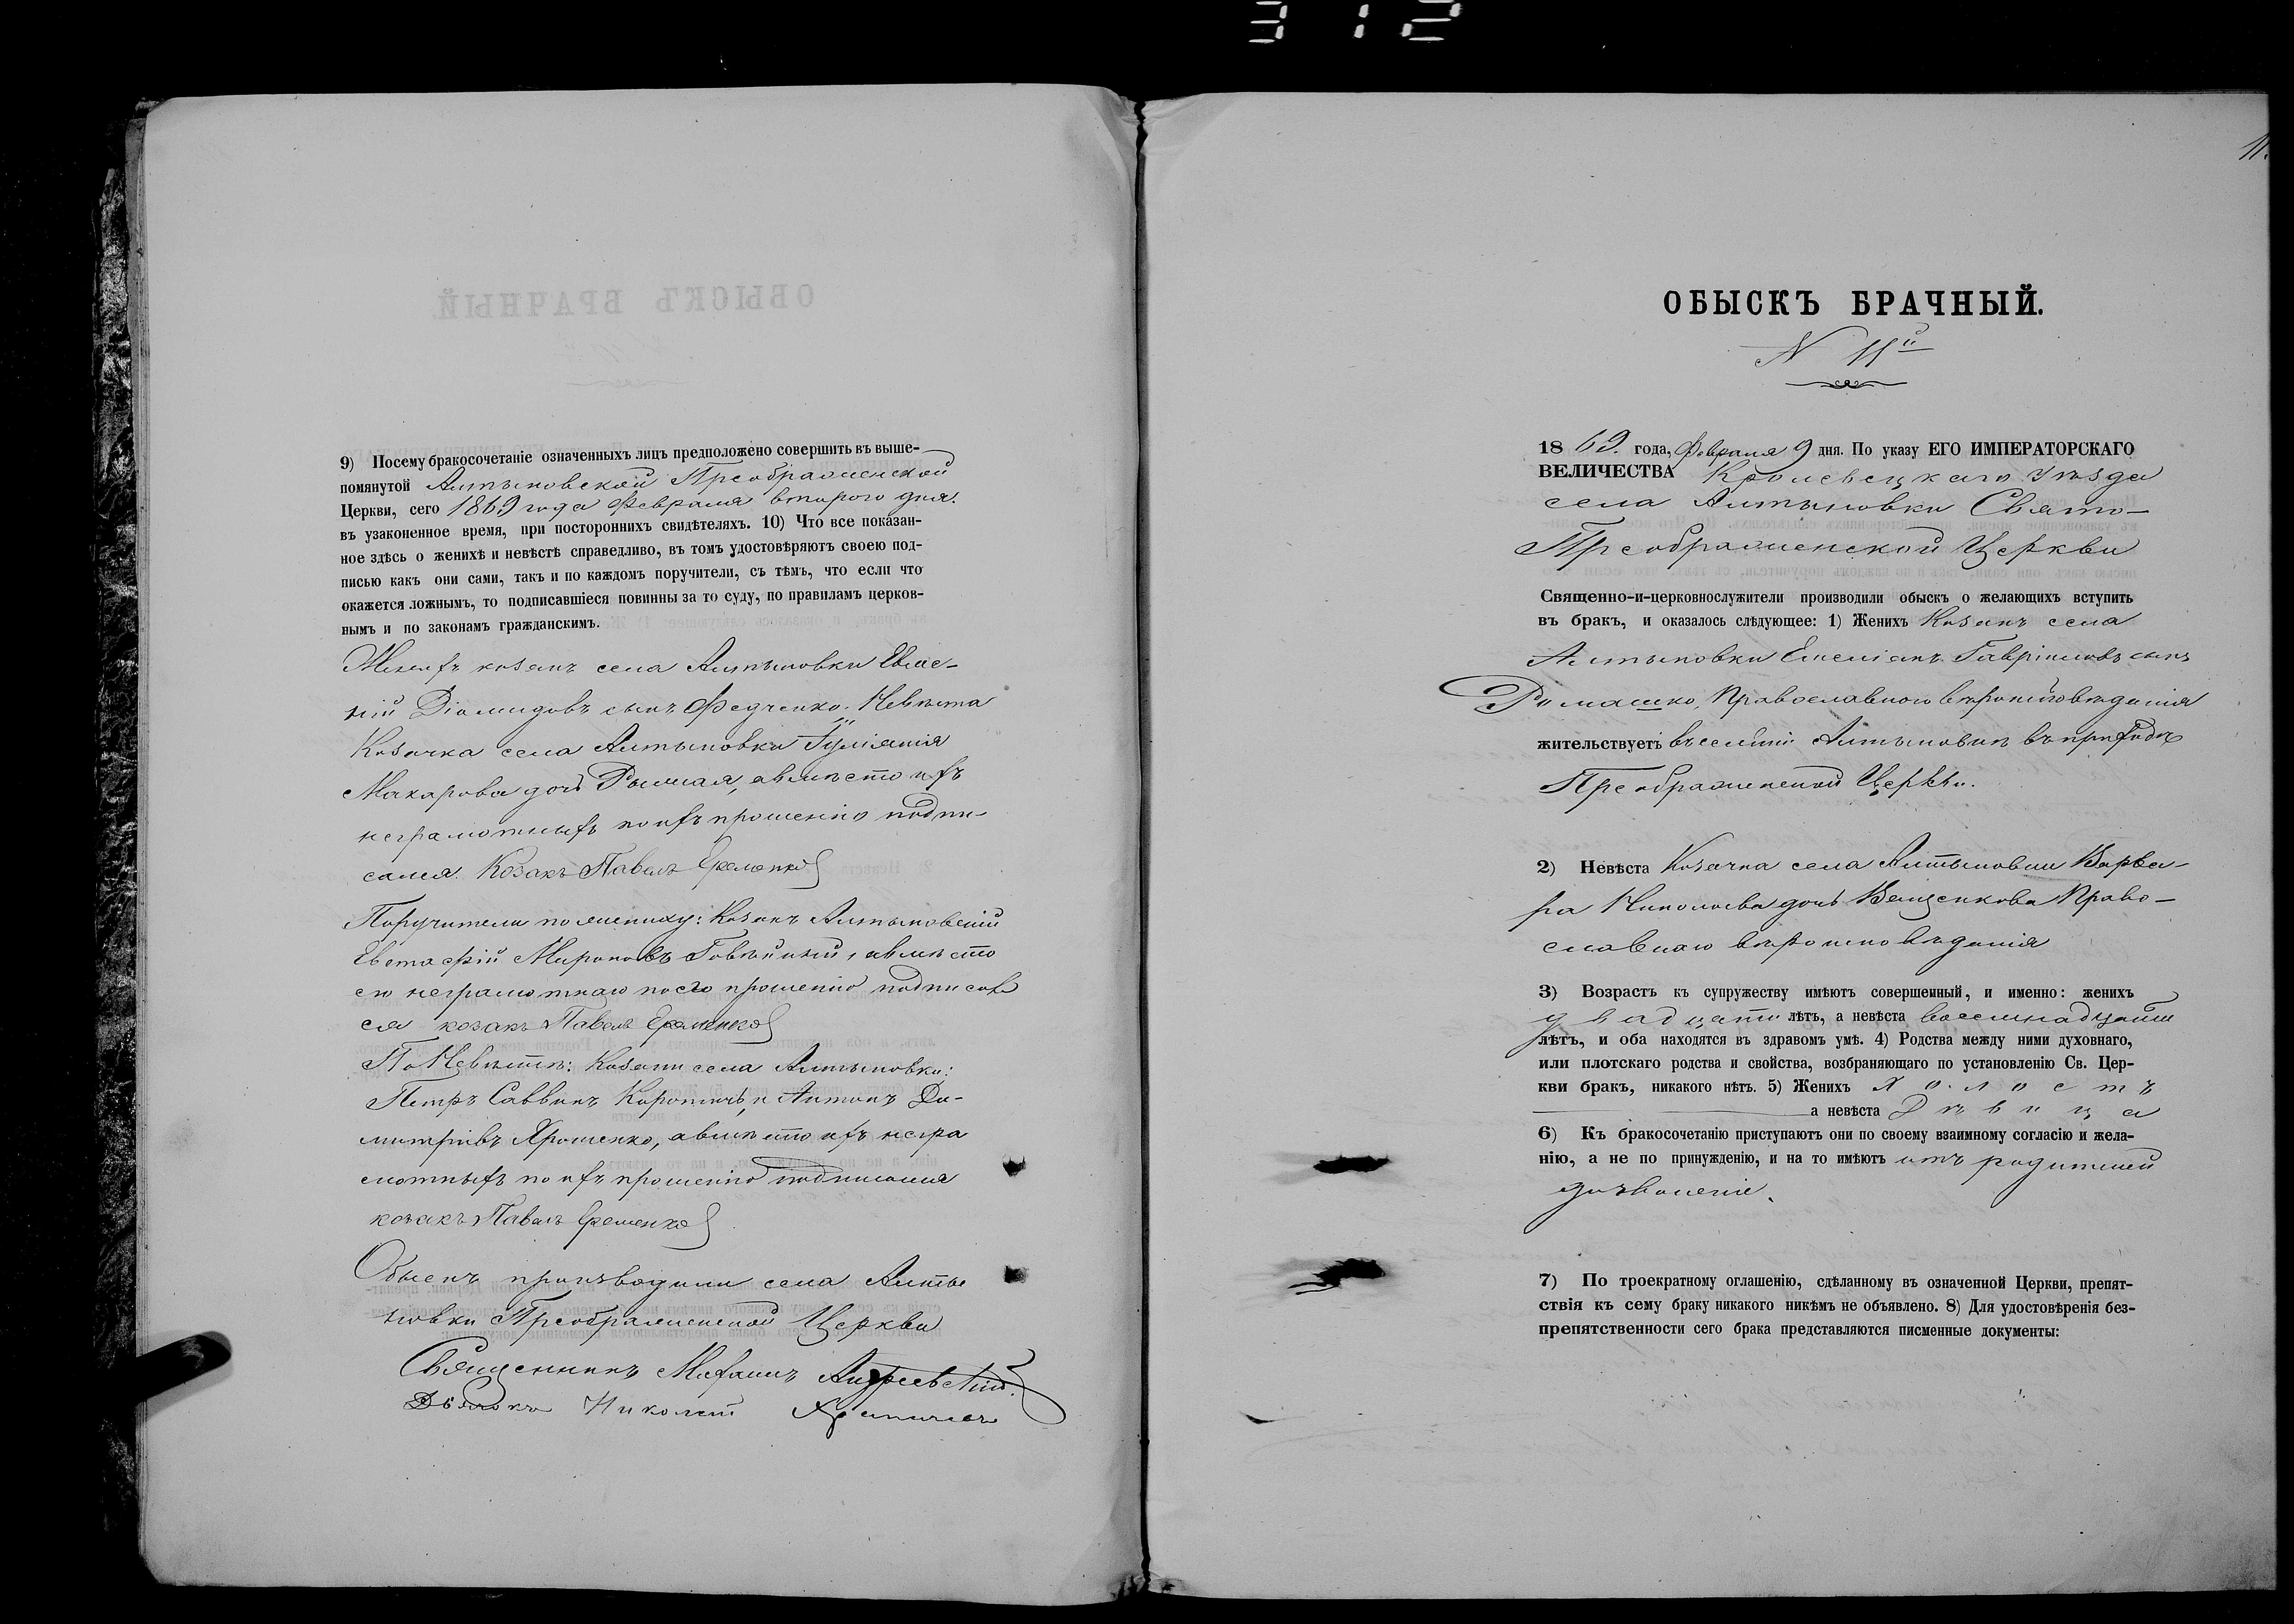 312
9) Посему бракосочетаніе означенныхъ лицъ предположено совершить въ выше-
помянутой Алтыновской Преображенской
Церкви, сего 1869 года Февраля втораго дня.
въ узаконенное время, при постороннихъ свидѣтеляхъ. 10) Что все показан-
ное здѣсь о женихѣ и невѣстѣ справедливо, въ томъ удостовѣряютъ своею под-
писью какъ они сами, такъ и по каждомъ поручители, съ тѣмъ, что если что
окажется ложнымъ, то подписавшіеся повинны за то суду, по правиламъ церков-
нымъ и по законамъ гражданскимъ.
Женихъ козакъ села Алтыновки
Діомидовъ сынъ Федченко. Невѣста
Козачка села Алтыновки Іуліанія
Макарова дочь вмѣсто ихъ
неграмотныхъ по ихъ прошенію подпи-
сался. Козакъ Павелъ Еременко
Поручители по жениху: Козакъ Алтыновскій
Евстафій Мироновъ вмѣсто
его неграмотнаго по его прошенію подписал
ся козакъ Павелъ Еременко
По Невѣстѣ: Козаки села Алтыновки:
Петръ Саввинъ и Антонъ Ди-
митріевъ Ярошенко, а вмѣсто ихъ негра
мотныхъ по ихъ прошенію подписался
козакъ Павелъ Еременко
Обыскъ производили села Алты
новки Преображенской Церкви
Священникъ Михаилъ Андреевскій.
Николай
11.
ОБЫСКЪ БРАЧНЫЙ.
N 11й
1869. года, Февраля 9 дня. По указу ЕГО ИМПЕРАТОРСКАГО
ВЕЛИЧЕСТВА Кролевецкаго Уѣзда
села Алтыновки Свято-
Преображенской Церкви
Священно-и-церковнослужители производили обыскъ о желающихъ вступить
въ бракъ, и оказалось слѣдующее: 1) Женихъ Козакъ села
Алтыновки Емеліанъ Гавріиловъ сынъ
Ромашко, Православного вѣроисповѣданія
жительствуетъ въ селѣнии Алтыновкѣ въ приходѣ
Преображенской Церкви.
2) Невѣста Козачка села Алтыновки Варва-
ра Николаева дочь Ващенкова Право-
славнаго вѣроисповѣданія
3) Возрастъ къ супружеству имѣютъ совершенный, и именно: женихъ
двадцати лѣтъ, а невѣста восемнадцати
лѣтъ, и оба находятся въ здравомъ умѣ. 4) Родства между ними духовнаго,
или плотскаго родства и свойства, возбраняющаго по установленію Св. Цер-
кви бракъ, никакого нѣтъ. 5) Женихъ Холостъ
а невѣста Дѣвица
6) Къ бракосочетанію приступаютъ они по своему взаимному согласію и жела-
нію, а не по принужденію, и на то имѣютъ отъ родителей
дозволеніе.
7) По троекратному оглашенію, сдѣланному въ означенной Церкви, препят-
ствія къ сему браку никакого никѣмъ не объявлено. 8) Для удостовѣренія без-
препятственности сего брака представляются писменные документы: